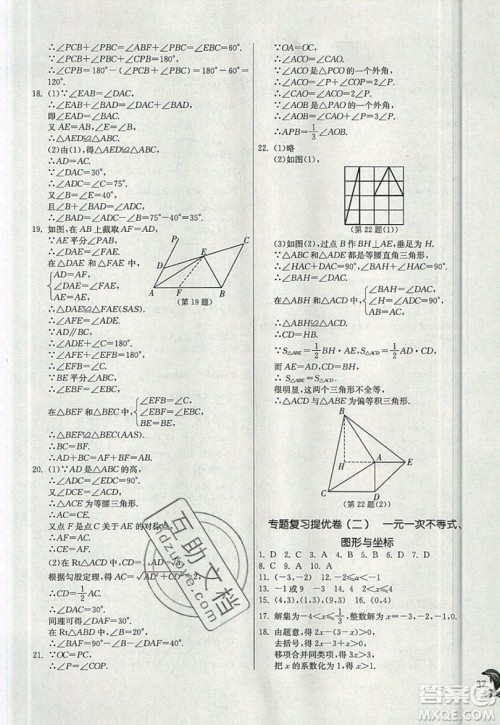 ∴∠PCB+∠PBC=∠ABF+∠PBC=∠EBC=60°.
∴∠BPC=180°-(∠PCB+∠PBC)=180°-60°=
120°.
18. (1)∵∠EAB=∠DAC,
∴∠EAB+∠BAD=∠DAC+∠BAD,
即∠EAD=∠BAC.
又AE=AB,∠E=∠B,
∴△AED≌△ABC.
(2)由(1),得△AED≌△ABC,
∴AD=AC.
∵∠DAC=30°,
∴∠ADC=∠C=75°.
又∠B=∠E=40°,
∴∠BAD=∠ADC-∠B=75°-40°=35°.
19. 如图,在AB上截取AF=AD,
∵AE平分∠PAB,
∴∠DAE=∠FAE.
在△DAE和△FAE中,
AD=AF,
∠DAE=∠FAE,
AE=AE,
P
C
E
D
A
F
B
(第19题)
∴△DAE≌△FAE(SAS).
∴∠AFE=∠ADE.
∵AD∥BC,
∴∠ADE+∠C=180°.
又∠AFE+∠EFB=180°,
∴∠EFB=∠C.
∵BE平分∠ABC,
∴∠EBF=∠EBC.
在△BEF和△BEC中,
∠EFB=∠C,
∠EBF=∠EBC,
BE=BE,
∴△BEF≌△BEC.
∴BC=BF.
20. (1)∵AD是△ABC的高,
∴∠ADB=∠ADC=90°.
又
∴△ABD为等腰直角三角形.
∴DB=DA.
又点F是点C关于AD的对称点,
∴FD=CD.
∴AC=BE.
(2)在Rt△ADC中,
根据勾股定理,得
∴CD=1/2AC.
∴∠CAD=30°.
同理可得∠DAF=30°.
在Rt△ABD中,
∴∠BAF=∠BAD-∠DAF=15°.
21. ∵OC=PC,
∴∠P=∠COP.
∵OA=OC,
∴∠ACO=∠CAO.
∵∠ACO是△PCO的一个外角,
∴∠CAO=∠ACO=2∠P.
∵∠AOB是△PAO的一个外角,
∴∠AOB=∠P+∠PAO=3∠P.
∴∠APB=1/3∠AOB.
22. (1)略
(2)如图(1),
(第22题(1))
(3)如图(2),过点B作BH⊥AE,垂足为H.
∵△ABC和△ADE都是等腰直角三角形,
∴∠HAC+∠DAC=90°,∠BAH+∠HAC=90°.
∴∠BAH=∠DAC.
在△ABH和△ACD中,
∠BHA=∠CDA,
∠BAH=∠CAD,
AB=AC,
∴△ABH≌△ACD.
∴BH=CD.
∵S△ABE=1/2BH·AE,S△ACD=1/2AD·CD,
而AE=AD,BH=CD,
∴S△ABE=S△ACD.
很明显,这两个三角形不全等,
∴△ACD与△ABE为偏等积三角形.
B
H
A
E
C
D
(第22题(2))
专题复习提优卷(二) 一元一次不等式、
图形与坐标
1. D 2. C 3. A 4. B 5. B 6. D 7. D
8. C 9. A 10. A
11. (-3,-2) 12. -2≤a<-1
13. -1或9 14. -3 15. -3
16. (4,3),(4,-3),(-4,3),(-4,-3)
17. 解集为-4<x≤-1/3,整数解为-3,-2,-1
18. 由题意,得2x-(3-x)>0,
去括号,得2x-3+x>0,
移项合并同类项,得3x>3,
把x的系数化为1,得x>1.
37
互助文档
hdzuoye.com
答案圈
MXQE.COM